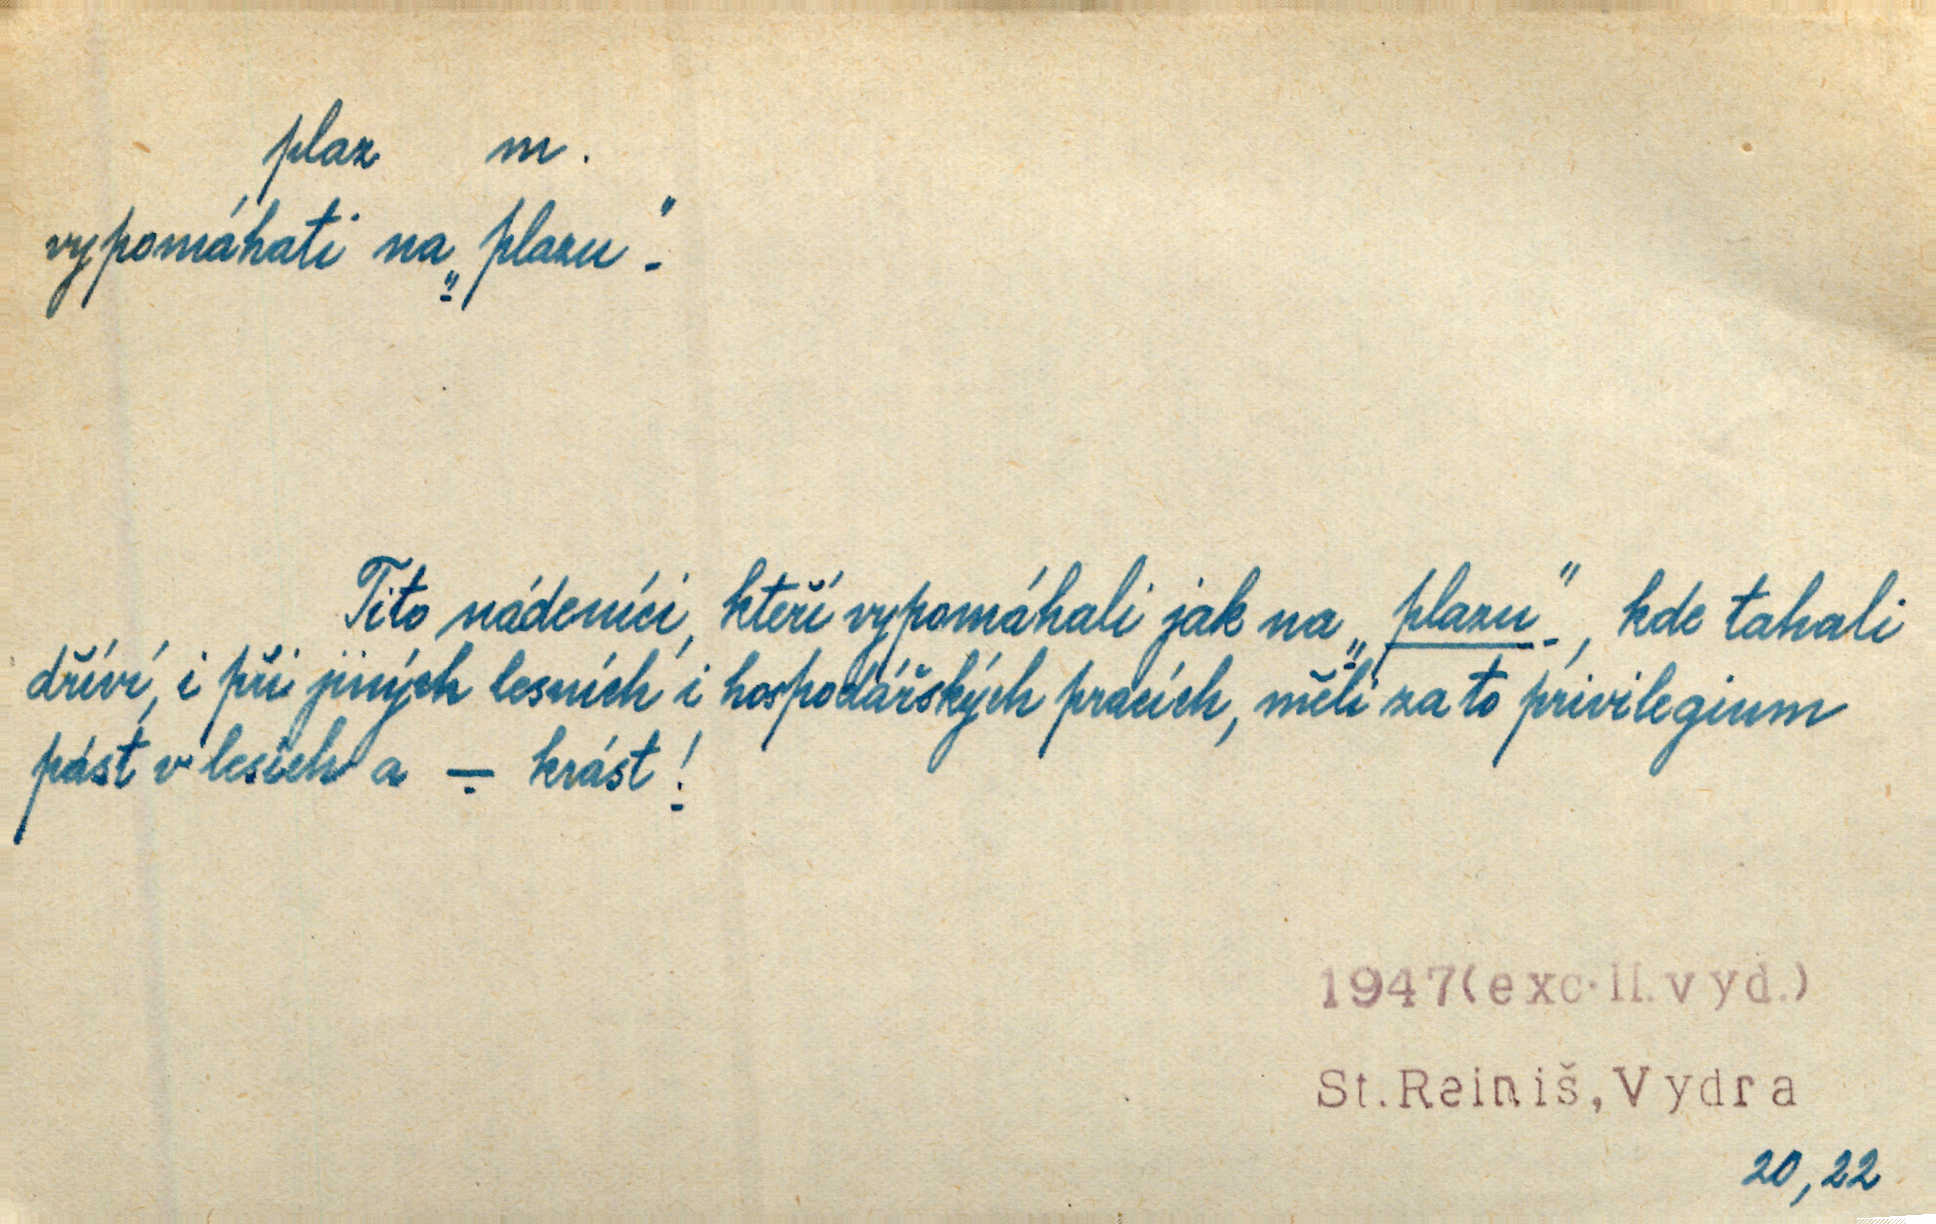 plaz m.
vypomáhati na „plazu“.
Tito nádeníci, kteří vypomáhali jak na „plazu“, kde tahali
dříví, i při jiných lesních i hospodářských pracích, měli za to privilegium
pást v lesích a — krást!
1947(exc.II.vyd.)
St.Reiniš,Vydra
20,22